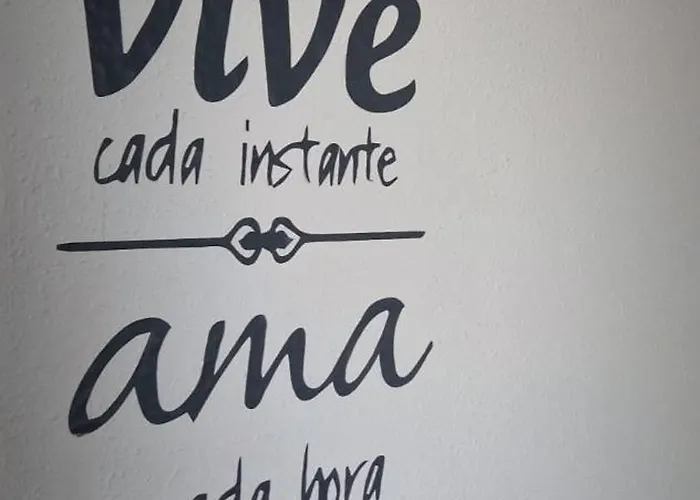 Vive
cada instante
ama
cada hora